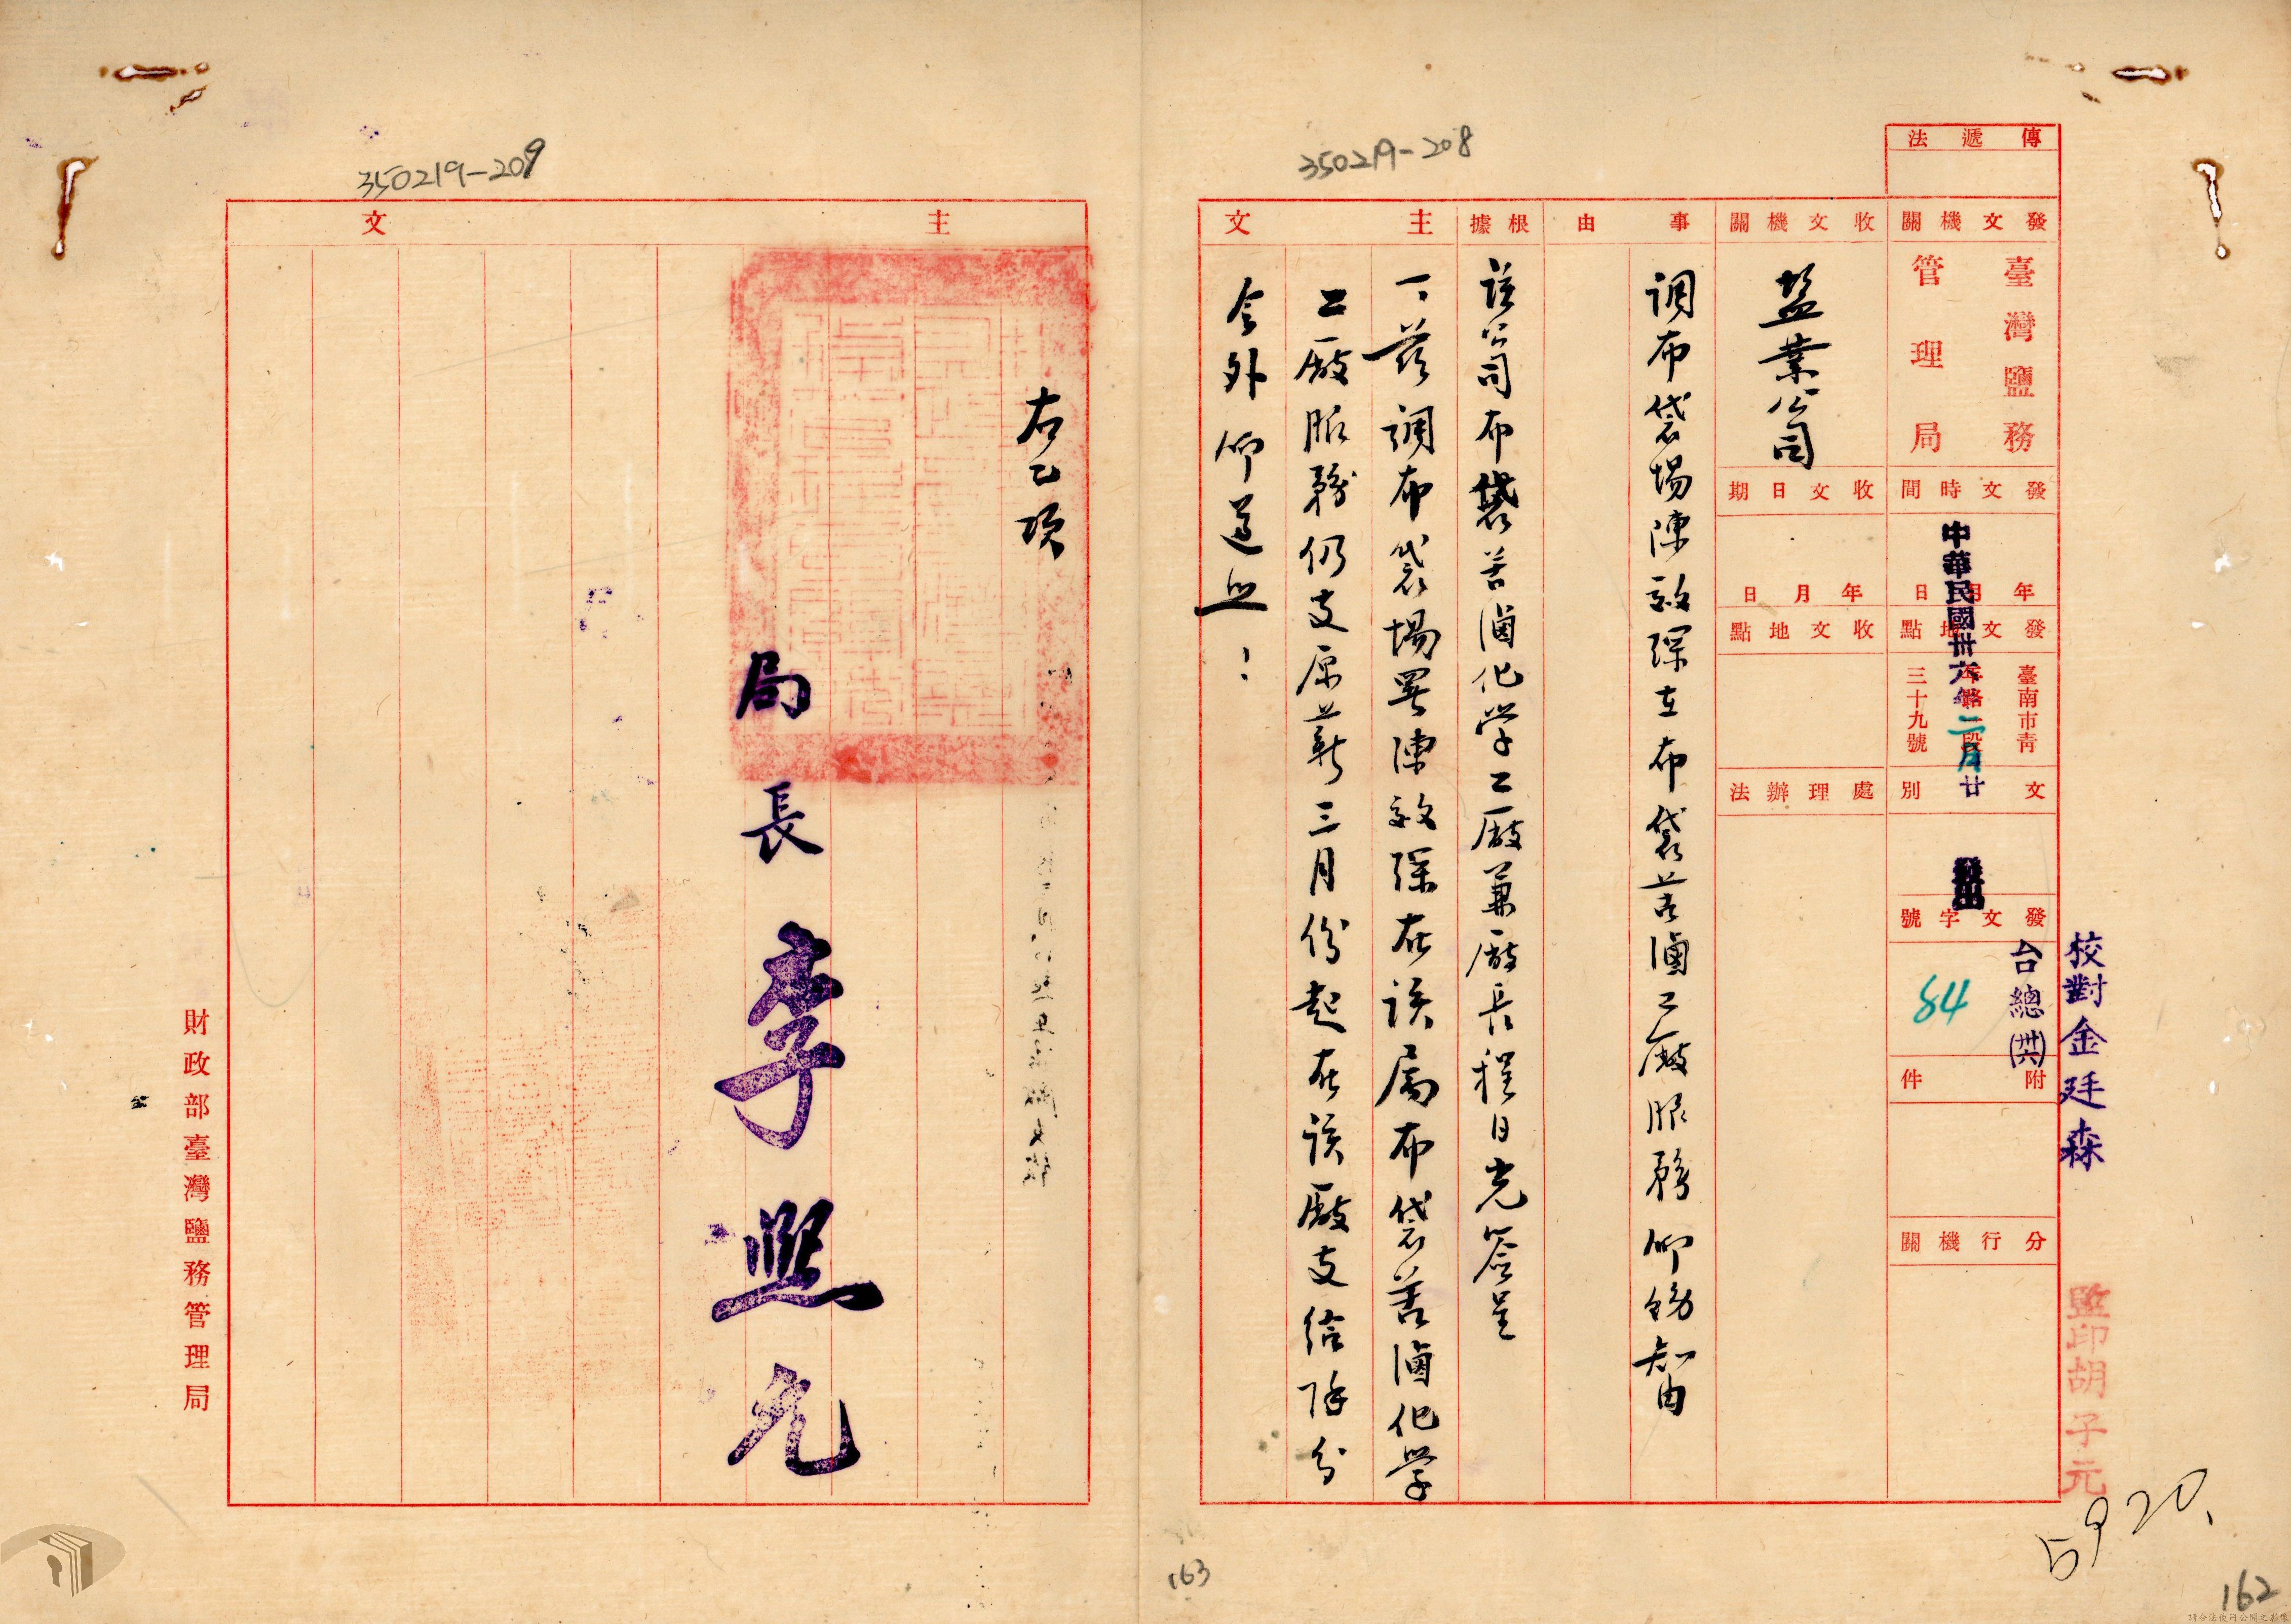 350219-208
傳遞法
發文機關
臺灣鹽務
管理局
發文時間
年月日
中華民國卅六年二月廿
發文地點
臺南市青
年路二段
三十九號
文別
發文字號
台總(卅六)
84
附件
分行機關
校對金廷森
監印胡子元
收文機關
盐業公司
收文日期
年月日
收文地點
處理辦法
事由
调布袋場陳啟琛在布袋苦滷工廠服務仰飭知由
根據
該公司布袋苦滷化学工廠兼廠長程日光簽呈
主文
一、茲調布袋場署陳啟琛在該属布袋苦滷化学
工廠服務仍支原薪三月份起在該廠支给除分
令外仰遵照：
5920.
162
350219-209
主文
右乙項
局長李熙允
財政部臺灣鹽務管理局
163
請合法使用公開之影像